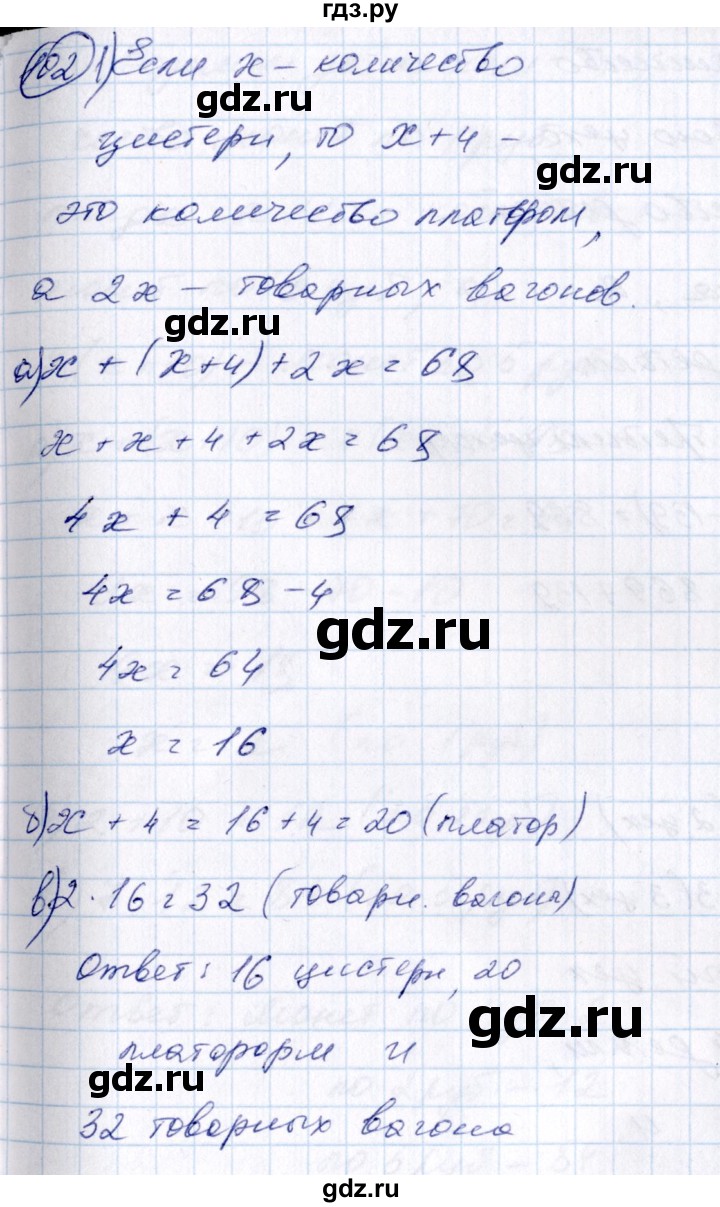 гдз.ру
102 1) Если x – количество
gdz.ru
цистерн, то x+4 –
gdz.ru
это количество платформ,
а 2x – товарных вагонов.
gdz.ru
а) x + (x+4) + 2x = 68
x + x + 4 + 2x = 68
4x + 4 = 68
4x = 68 – 4
gdz.ru
4x = 64
x = 16
б) x + 4 = 16 + 4 = 20 (платфор)
gdz.ru
в) 2 · 16 = 32 (товарн. вагона)
Ответ: 16 цистерн, 20
gdz.ru
платформ и
gdz.ru
32 товарных вагона
gdz.ru